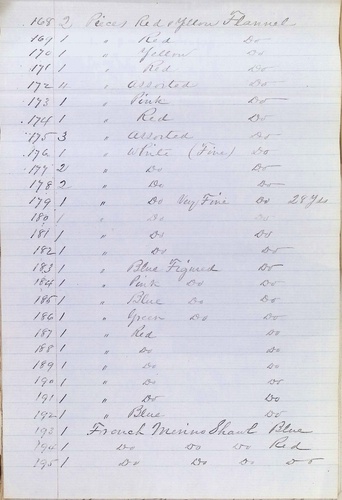 168 2 Pieces Red & Yellow Flannel
169 1 " Red Do
170 1 " Yellow Do
171 1 " Red Do
172 " " Assorted Do
173 1 " Pink Do
174 1 " Red Do
175 3 " Assorted Do
176 1 " White (Fine) Do
177 2 " Do Do
178 2 " Do Do
179 1 " Do Very Fine Do 28 Yds
180 1 " Do Do
181 1 " Do Do
182 1 " Do Do
183 1 " Blue Figured Do
184 1 " Pink Do Do
185 1 " Blue Do Do
186 1 " Green Do Do
187 1 " Red Do
188 1 " Do Do
189 1 " Do Do
190 1 " Do Do
191 1 " Do Do
192 1 " Blue Do
193 1 French Merino Shawl Blue
194 1 Do Do Do Red
195 1 Do Do Do Do